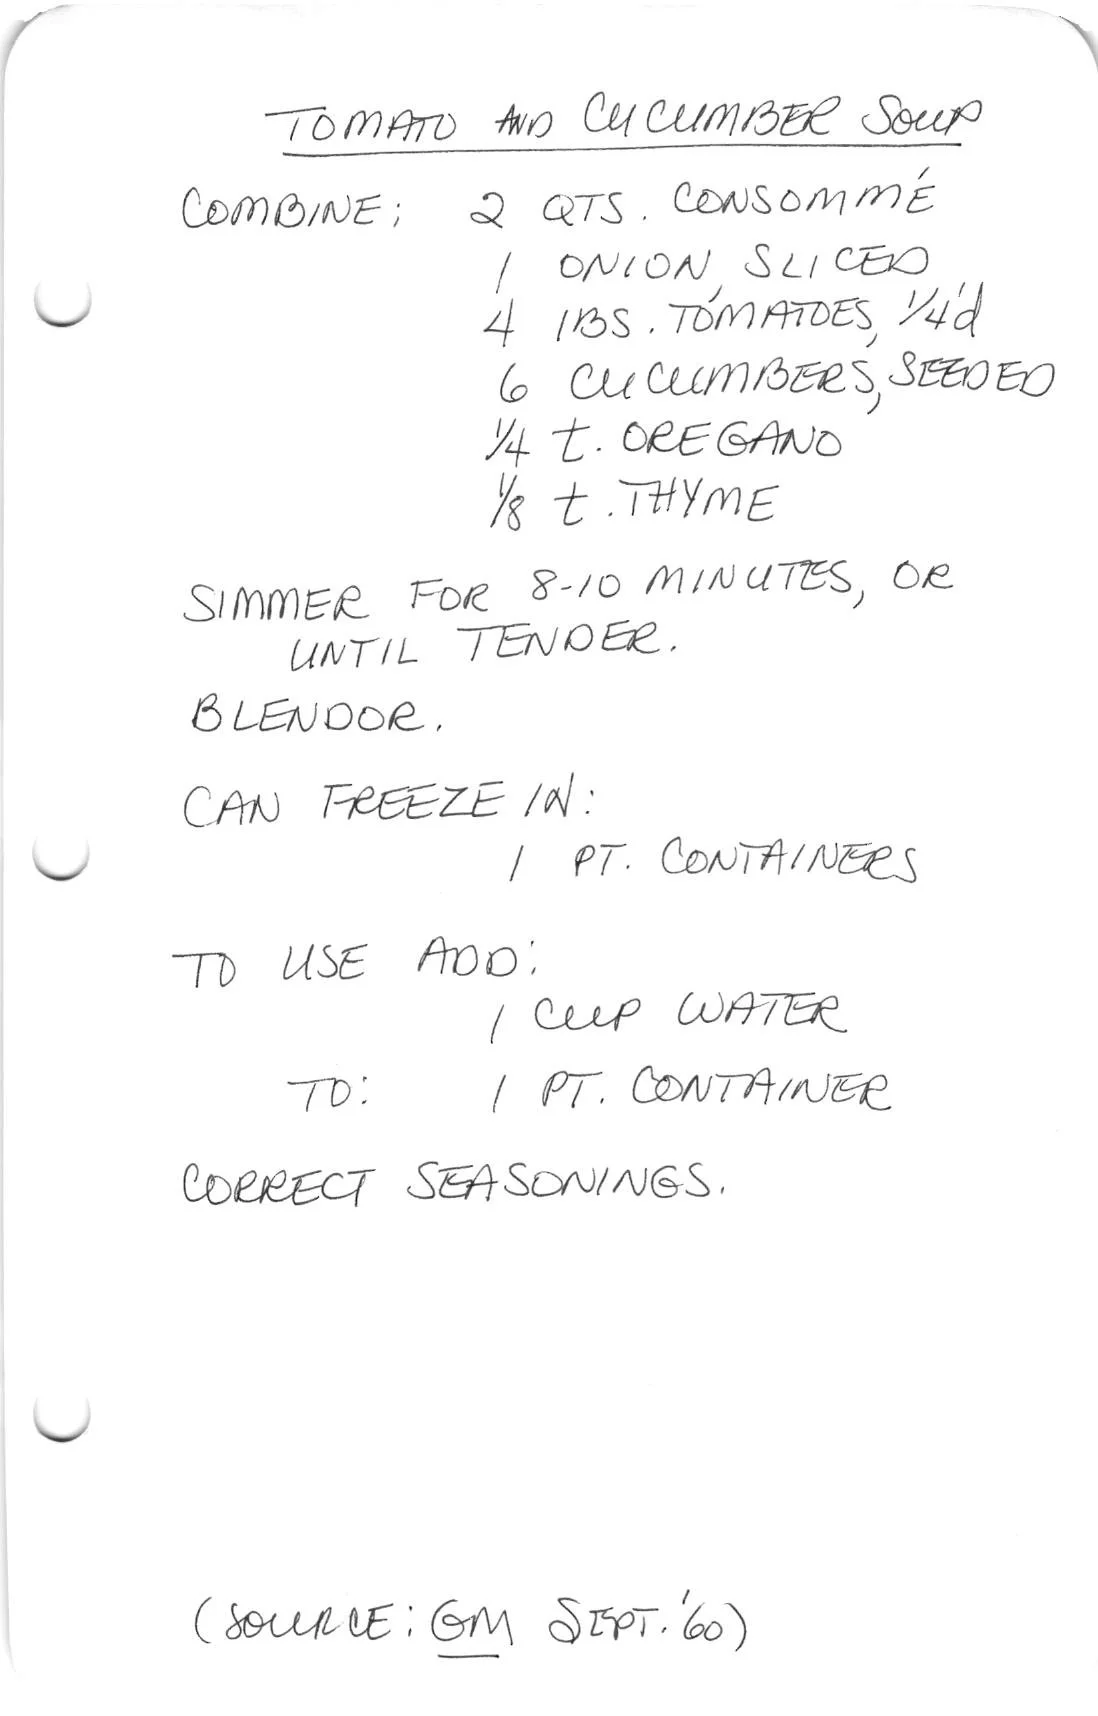 TOMATO AND CUCUMBER SOUP
COMBINE: 2 QTS. CONSOMMÉ
1 ONION, SLICED
4 lBS. TOMATOES, 1/4'd
6 CUCUMBERS, SEEDED
1/4 t. OREGANO
1/8 t. THYME
SIMMER FOR 8-10 MINUTES, OR
UNTIL TENDER.
BLENDOR.
CAN FREEZE IN:
1 PT. CONTAINERS
TO USE ADD:
1 CUP WATER
TO: 1 PT. CONTAINER
CORRECT SEASONINGS.
(SOURCE: GM SEPT. '60)